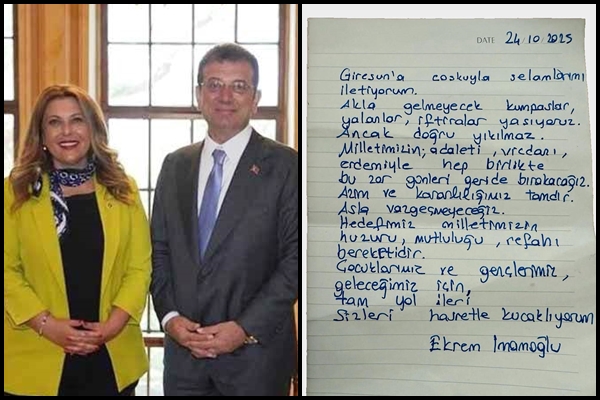 DATE 24/10/2025
Giresun'a coşkuyla selamlarımı
iletiyorum.
Akla gelmeyecek kumpaslar,
yalanlar, iftiralar yaşıyoruz.
Ancak doğru yıkılmaz.
Milletimizin; adaleti, vicdanı,
erdemiyle hep birlikte
bu zor günleri geride bırakacağız.
Azim ve kararlılığımız tamdır.
Asla vazgeçmeyeceğiz.
Hedefimiz milletimizin
huzuru, mutluluğu, refahı
bereketidir.
Çocuklarımız ve gençlerimiz,
geleceğimiz için,
tam yol ileri
Sizleri hasretle kucaklıyorum
Ekrem İmamoğlu